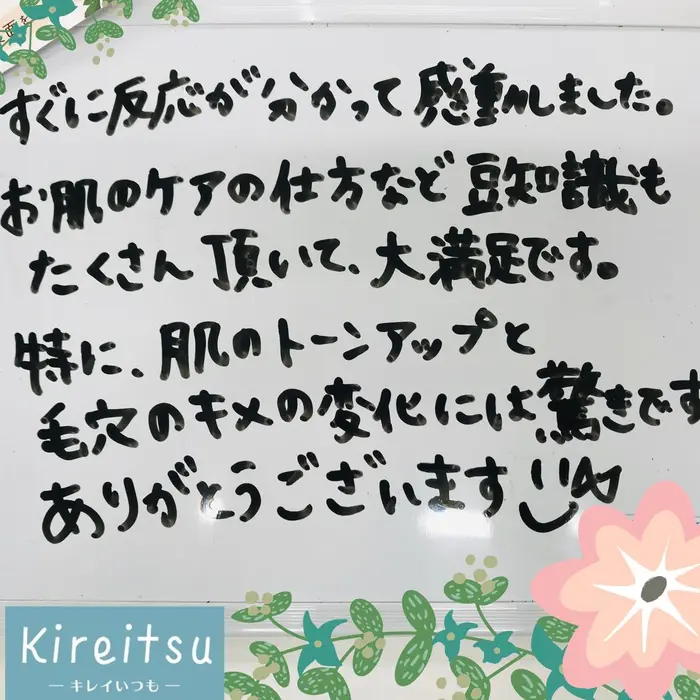 すぐに反応が分かって感動しました。
お肌のケアの仕方など豆知識も
たくさん頂いて、大満足です。
特に、肌のトーンアップと
毛穴のキメの変化には驚きです
ありがとうございます
Kireitsu
— キレイいつも —